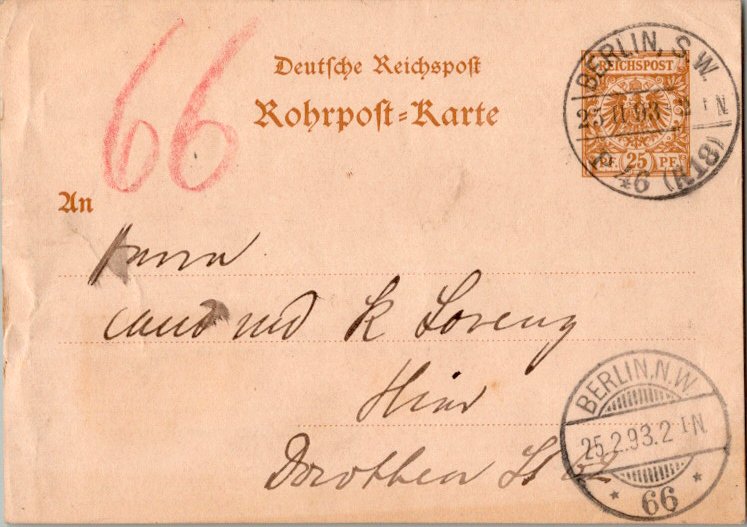 66
Deutsche Reichspost
Rohrpost=Karte
REICHSPOST
25 PF.
BERLIN, S.W.
25 II 93 2 1 N
46 (R18)
An
Herrn
cand med K Lorenz
Hier
Dorotheen St 62
BERLIN,N.W.
25.2.93.2-1N
* 66 *